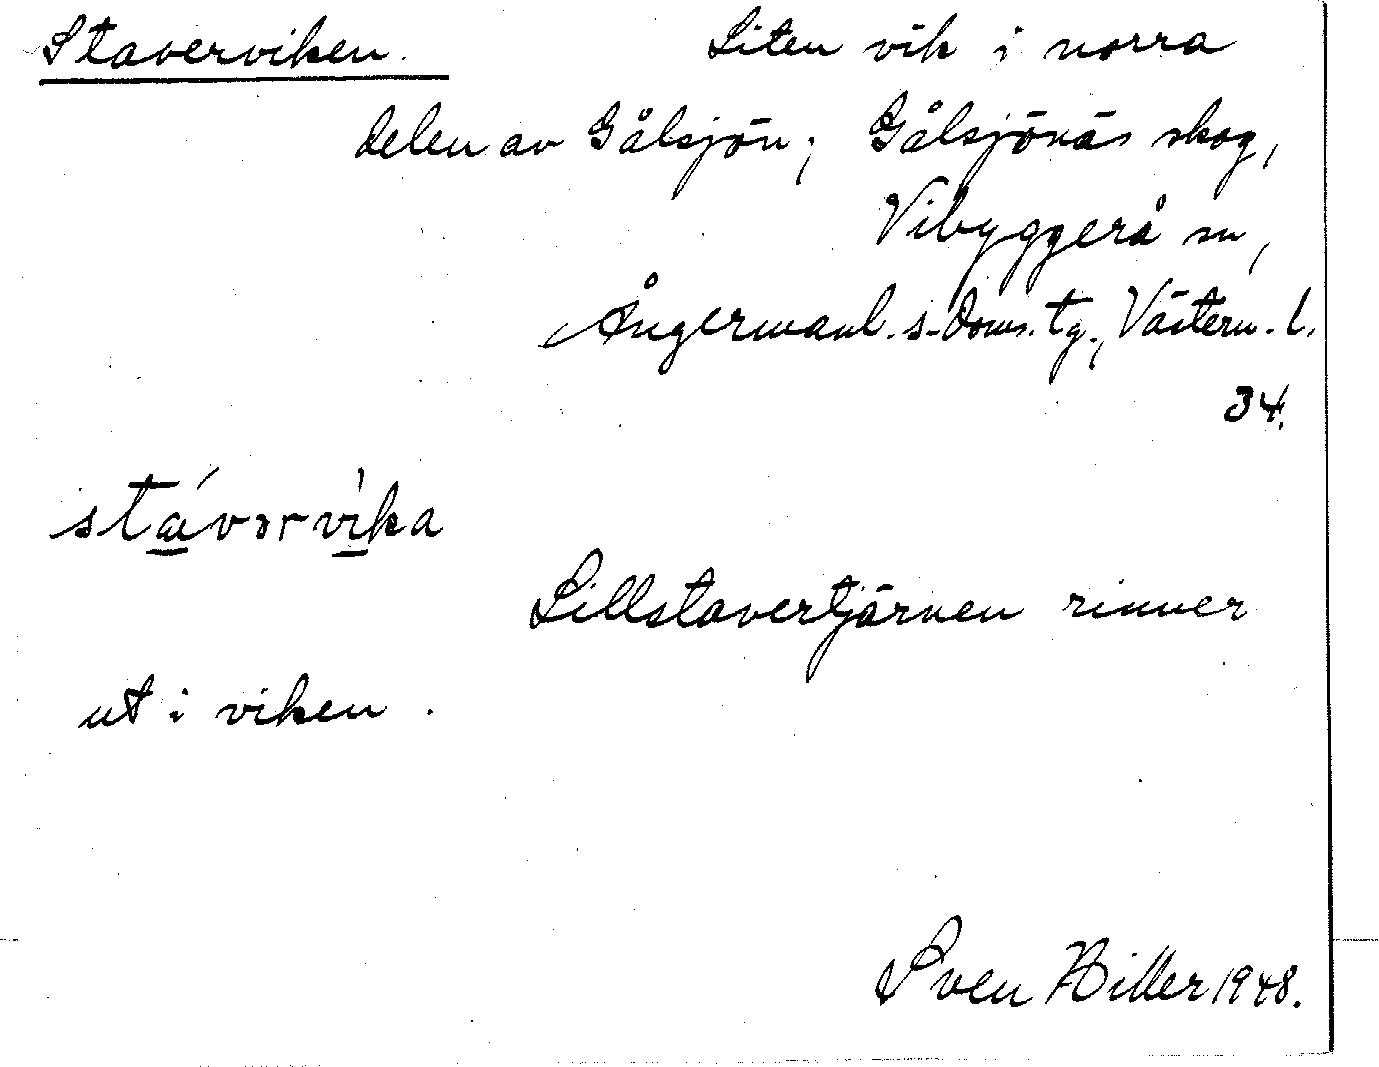 Staverviken. Liten vik i norra
delen av Gålsjön; Gålsjönäs skog,
Vibyggerå sn,
Ångermanl. s. doms. tg., Västern. l.
34.
stávərvìka
Lillstavertjärnen rinner
ut i viken.
Sven Hiller 1948.